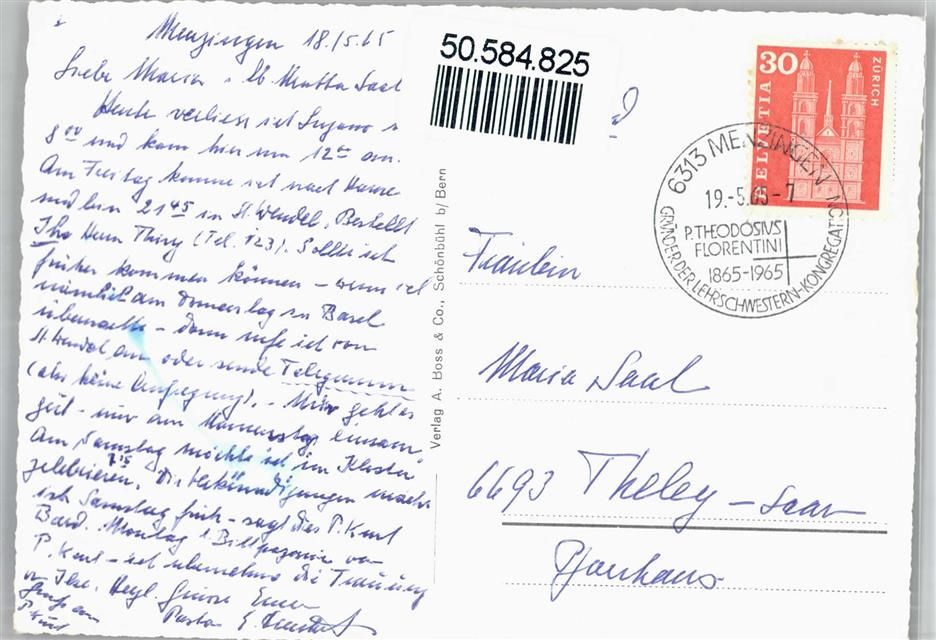 Menzingen 18./5.65
Liebe Maria u. lb. Mutter Saal
Heute verliess ich Lugano
8ºº und kam hier um 12ºº an.
Am Freitag komme ich nach Hause
und bin 21⁴⁵ in St. Wendel. Bestellt
Ihr Herrn Thiry (Tel. 123). Sollte ich
früher kommen können – wenn ich
nämlich am Donnerstag in Basel
übernachte – dann rufe ich von
St. Wendel an oder sende Telegramm
(also keine Aufregung). – Mir geht es
gut – nur am Namenstag "einsam"
Am Samstag möchte ich im Kloster
7¹⁵
zelebrieren. Die Verkündigungen mache
ich Samstag früh – sagt dies P. Kurt
Montag
P. Kurt – ich übernehme die Trauung
Herzl. Grüsse Euer
Pastor
Gruß an
P. Kurt
50.584.825
Verlag A. Boss & Co., Schönbühl b/ Bern
30
HELVETIA
ZÜRICH
6313 MENZINGEN
19.-5.65-7
P. THEODOSIUS
FLORENTINI
1865-1965
GRÜNDER DER LEHRSCHWESTERN-KONGREGATION
Fräulein
Maria Saal
6693 Theley – Saar
Pfarrhaus